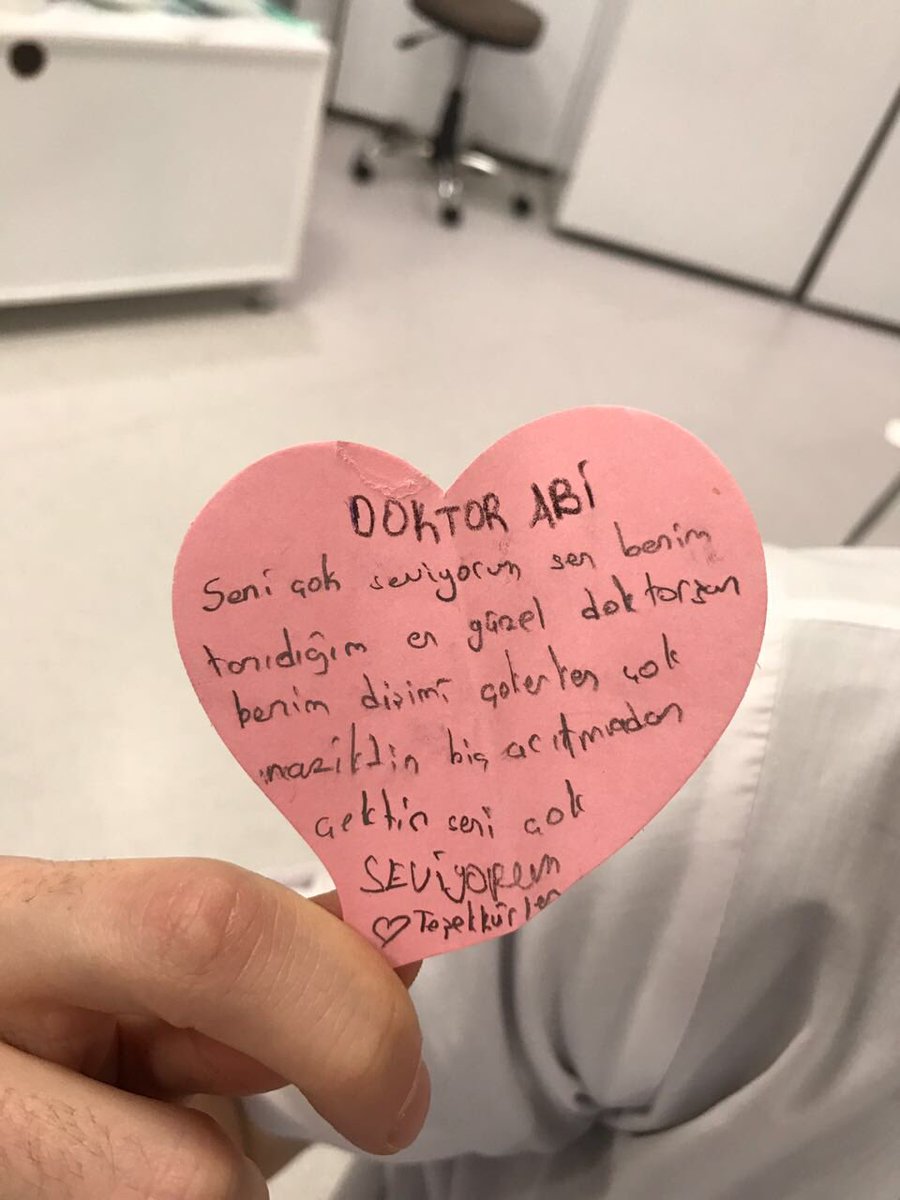 DOKTOR ABİ
Seni çok seviyorum sen benim
tanıdığım en güzel doktorsun
benim dişimi çekerken çok
naziktin hiç acıtmadan
çektin seni çok
SEViyorum
♡ Teşekkürler